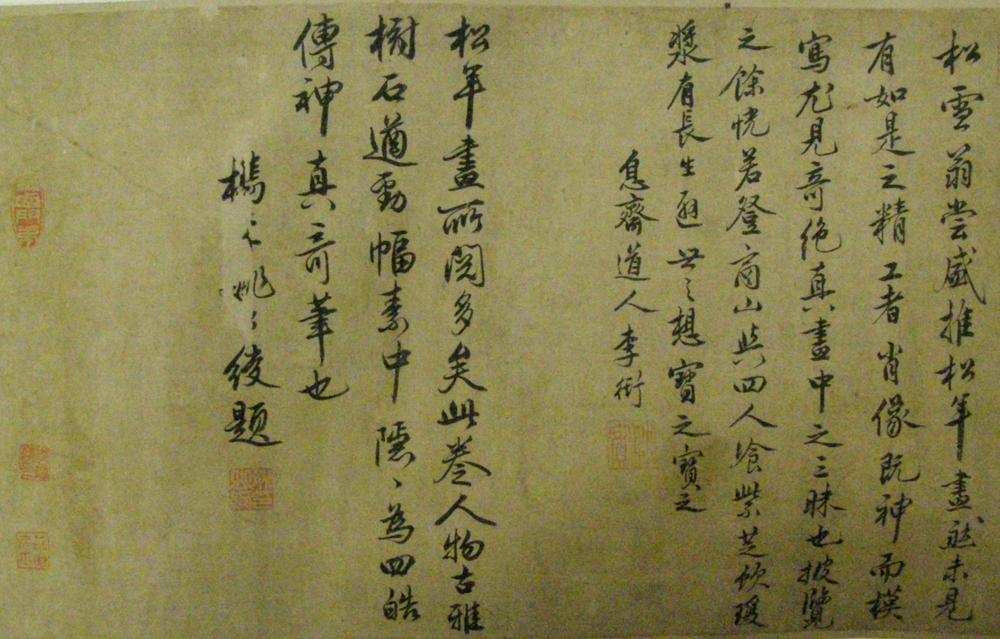 松雪翁尝盛推松年畫然未見
有如是之精工者肖像既神而模
寫尤見奇絶真畫中之三昧也披覽
之餘恍若登商山與四人飡紫芝飲瓊
漿有長生遯世之想寳之寳之
息齋道人李衎
松年畫所閲多矣此卷人物古雅
樹石遒勁幅素中隱々為四皓
傳神真奇筆也
綬題